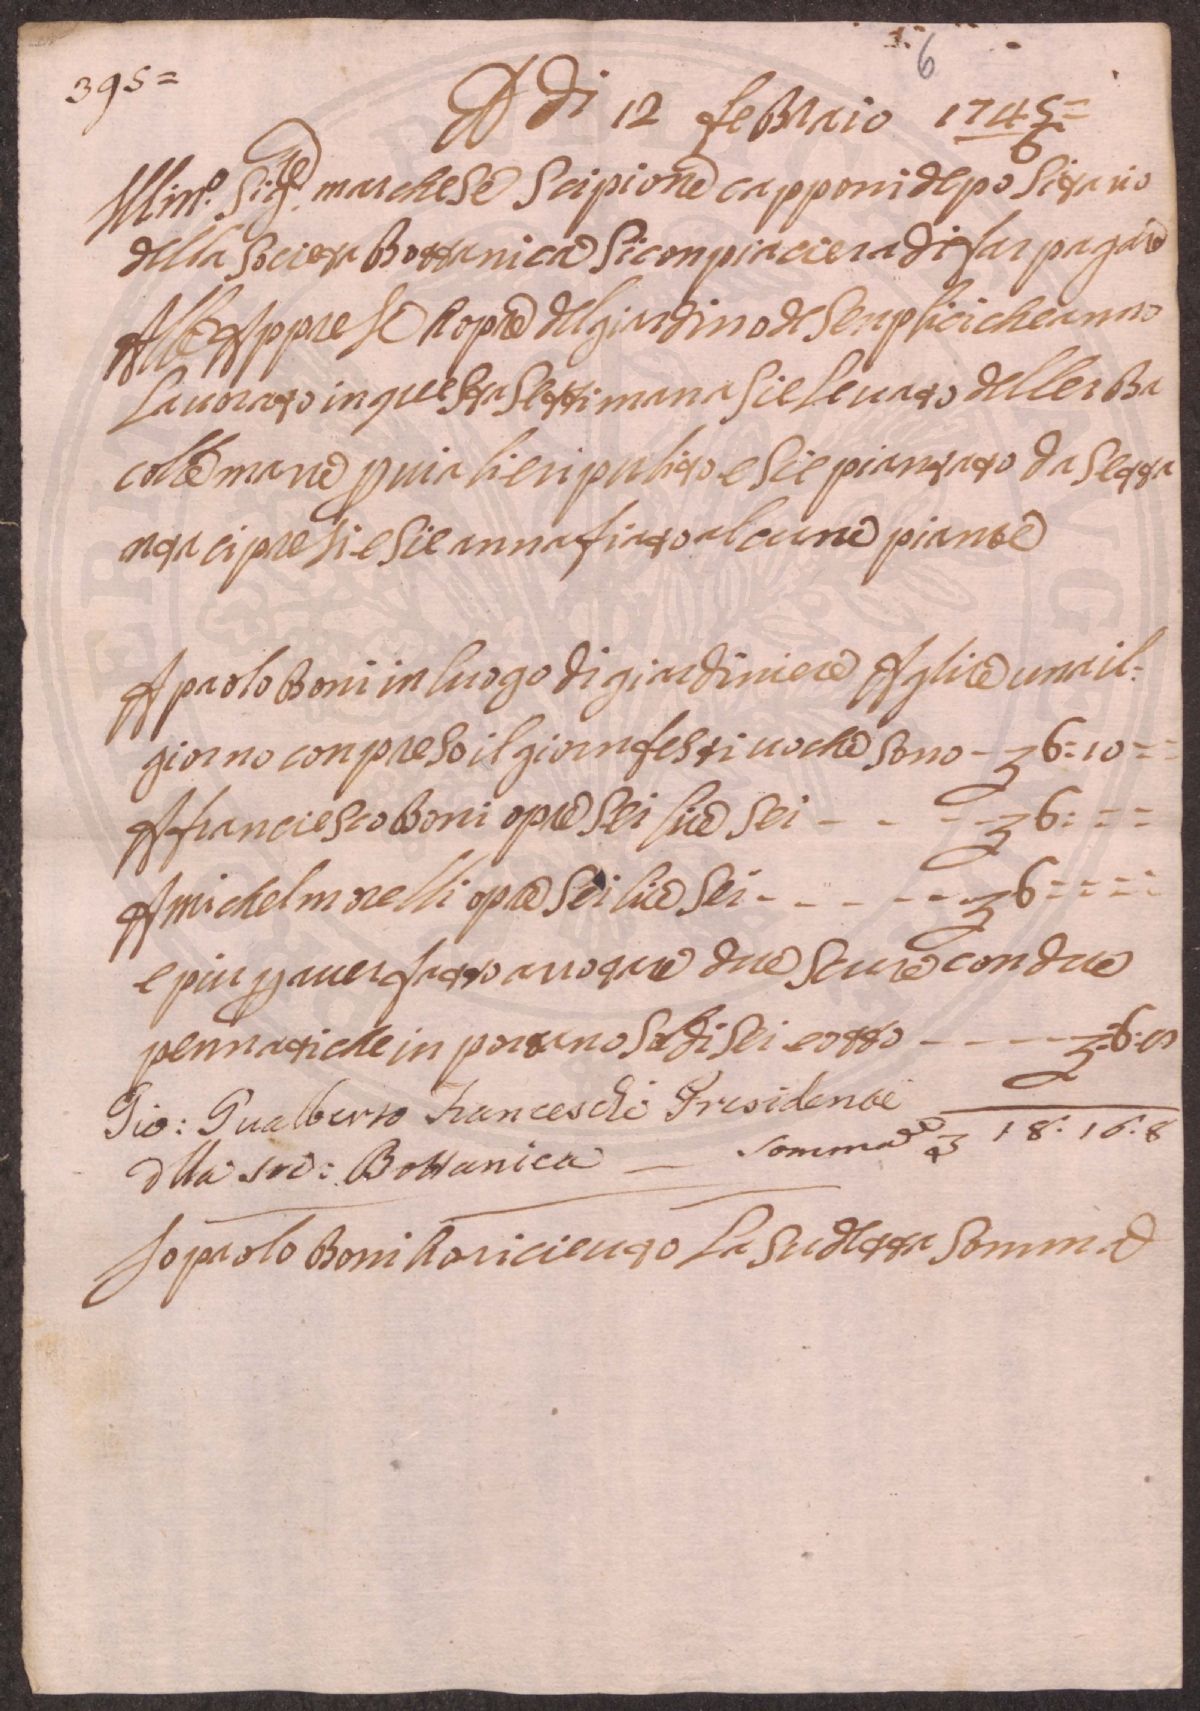 395=
6
A di 12 feBraio 1745=
6
Illmo. Sige. marchese Scipione capponi depo Sitario
della Societa Bottanica Si conpiaciera di far pagare
Alle Appresso hopre del giardino de Senplici che anno
Lauorato in questa Settimana Sie Leuato dellerBa
colle mane p uiali e ripulito e Sie piantato da Setta
nta cipresi e Sie annafiato alcune piante
A paolo Boni in luogo di giardiniere A glire una il=
giorno conpreso il giorn festiuo che sono - 6:10==
A franciesco Boni opre Sei lire Sei - - - 6:==
A michel morelli opre Sei lire Sei - - - - - - 6====
e piu p auer fatto arrotare due Scure con due
pennati che in portano Soldi Sei e otto - - - - :6:8
Gio: Gualberto Franceschi Presidente
dlla soc: Bottanica — Somma 18:16:8
Io paolo Boni ho riceuuto La Sudetta Somma